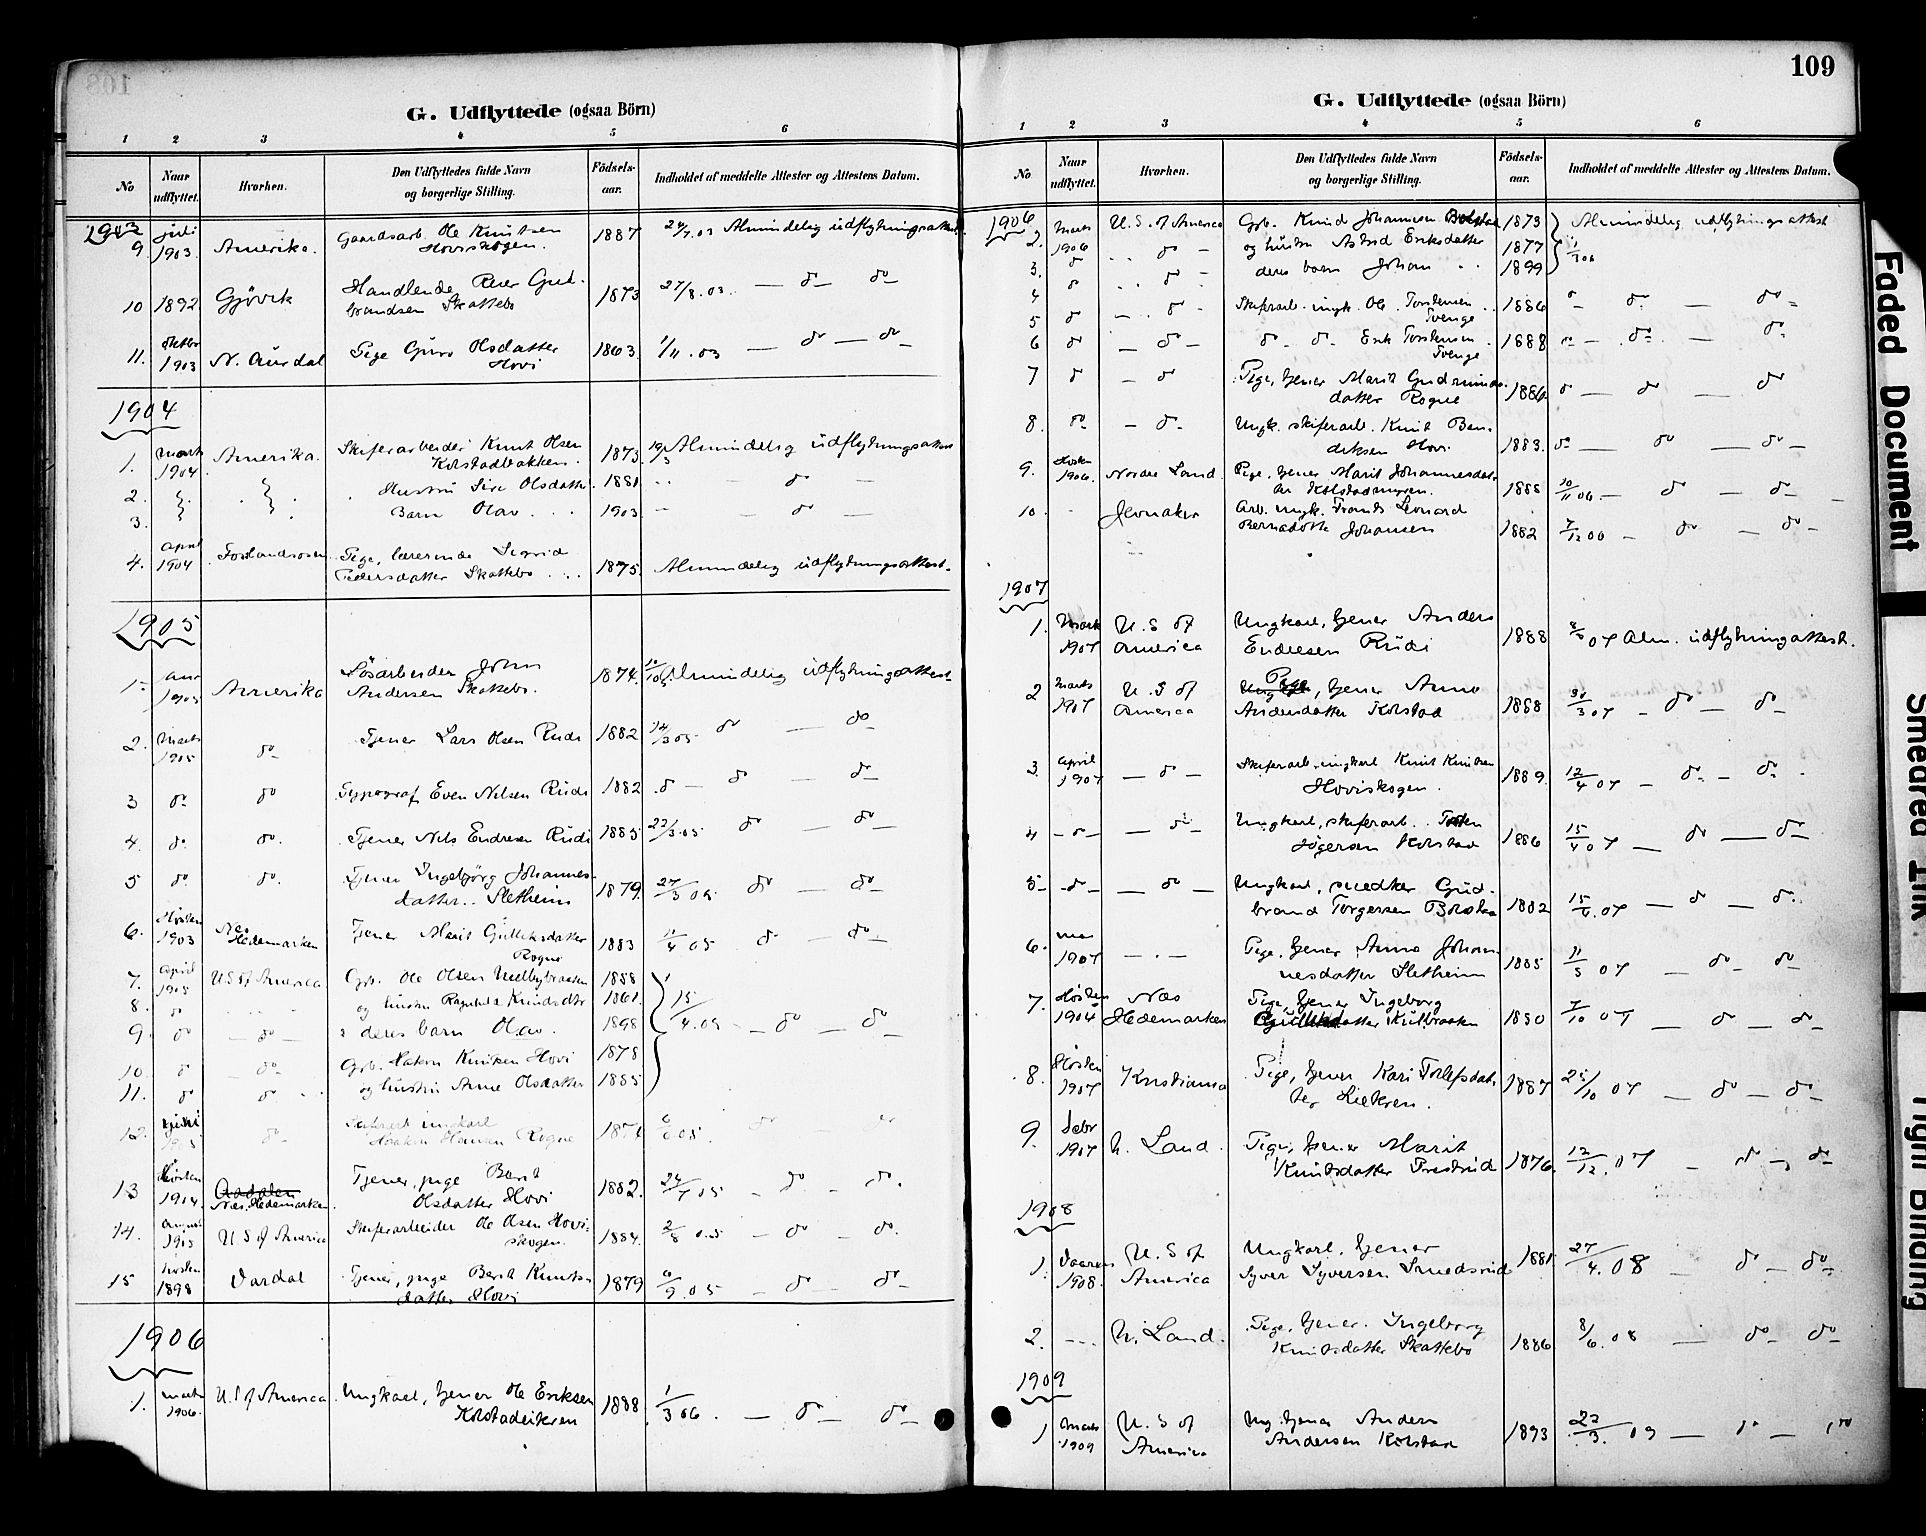 G. Udflyttede (ogsaa Börn)
1 2 3 4 5 6
No Naar udflyttet. Hvorhen. Den Udflyttedes fulde Navn og borgerlige Stilling. Födsels-aar. Indholdet af meddelte Attester og Attestens Datum.
1903
9. juli 1903 Amerika. Gaardsarb. Ole Knutsen Hoviskogen. 1887 24/7.03 Almindelig udflytningsattest
10 1892 Gjøvik Handlende Reier Gudbrandsen Skattebo 1873 27/8.03. — do — do —
11. 1903 N. Aurdal Pige Guro Olsdatter Hovi 1863 1/11.03 — do — do —
1904
1. marts 1904 Amerika. Skiferarbeider Knut Olsen Kolstadbakken. 1873 19/3 Almindelig udflytningsattest
2. Hustru Siri Olsdatter 1881 — do —
3. Barn Olav 1903 — do —
4. april 1904 Pige, lærerinde Sigrid Pedersdatter Skattebo 1875. Almindelig udflytningsattest.
1905
1. 1905 Amerika Andersen Skattebo. 1874. Almindelig udflytningsattest
2. Marts 1905 do Tjener Lars Olsen Rudi 1882 14/3 05 do — do
3 do do Typograf Even Nilsen Rudi 1882 do — do — do
4. do. do. Tjener Nils Endresen Rudi 1885 22/3.05 do — do
5 do. do. Tjener Ingebjørg Johannesdatter Sletheim 1879. 27/3 05 do — do
6. Høsten 1903 Nes Hedemarken Tjener Marit Gulliksdatter Rogne 1883 11/4 05 do — do
7. April 1905 U.S. of America Grb. Ole Olsen 1858
8. do og hustru Ragnhild Knudsdtr 1861. 15/4.05 — do — do
9. do — do — deres barn Olav. 1898
10. do — do — Grb. Hakon Knutsen Hovi 1878
11. do do og hustru Anne Olsdatter 1885
12. do 1874 6/6 05.
13 Høsten 1904 Aadalen Næs. Hedemarken Tjener, pige Berit Olsdatter Hovi 1882. — do — do.
14. August 1905 U S of America Skiferarbeider Ole Olsen Hoviskogen. 1884. 2/8 05 — do — do.
15 høsten 1898 Vardal Tjener, pige Berit Knutsdatter Hovi 1879 6/9.05 — do — do
1906
1. marts 1906. U.S. of America Ungkarl, tjener Ole Eriksen Kolstadeikren 1888 1/3 06. — do — do
109
G. Udflyttede (ogsaa Börn)
1 2 3 4 5 6
No Naar udflyttet. Hvorhen. Den Udflyttedes fulde Navn og borgerlige Stilling. Födsels-aar. Indholdet af meddelte Attester og Attestens Datum.
1906
2. Marts 1906 U.S. of America Grb. Knud Johannesen Bolstad 1873 Almindelig udflytningsattest
3. do do og hustru Astrid Eriksdatter 1877
4 do do deres barn Johan 1899
5 do do Skiferarb. ungk. Ole Torstensen Tvenge 1886 do — do
6 do — do — do — do — Erik Torstensen Tvenge 1888 do — do
7 do — do Pige, tjener Marit Gudmundsdatter Rogne 1886 do — do — do
8. do — do — Ungk. skiferarb. Knut Bendiksen Hovi 1883. do — do — do —
9. Høsten 1906. Nordre Land Pige, tjener Marit Johannesdatter Kolstadmyren. 1888 10/11 06 — do — do —
10. Jevnaker Arb. ungk. Frants Leonard Bernadotte Johansen 1882 7/12 06 — do — do —
1907
1. Marts 1907 U.S of America Ungkarl, tjener Anders Endresen Rudi 1888 07 Alm. udflytningattest.
2 Marts 1907 U.S of America Pige, tjener Anne Andersdatter Kolstad 1888 30/3 07 — do — do —
3. April 1907 — do — Skiferarb. ungkarl Knut Knutsen Hoviskogen. 1889. 12/4 07 — do — do
4 — do — — do — Ungkarl, skiferarb. Kolstad 1886 15/4 07 — do — do —
5 — do — — do — Ungkarl, snedker Gudbrand Torgersen Bolstad 1882 15/4.07 — do — do
6. mai 1907 — . — Pige, tjener Anne Johannesdatter Sletheim 1885 11/5 07 — do — do —
7. Høsten 1904 Næs Hedemarken Pige, tjener Ingeborg 1880 7/10 07 — do — do —
8. Høsten 1907 Kristiania Pige, tjener Kari Tollefsdatter 1887 25/10 07 — do — do —
9. Febr 1907 N. Land. Pige, tjener Marit Knutsdatter Prestrud 1876. 12/12.07 — do — do —
1908
1. Vaaren 1908. U.S of America Ungkarl, tjener Syver Syversen Smedsrud 1881 27/4.08 — do — do
2. N. Land. Pige, tjener. Ingeborg Knutsdatter Skattebo 1886 8/6.08 — do — do
1909
1 Marts 1909 U.S of America Ung. tjener Anders Andersen Kolstad 1893 22/3. 09 — do — do
Faded Document
Smeared Ink
Tight Binding